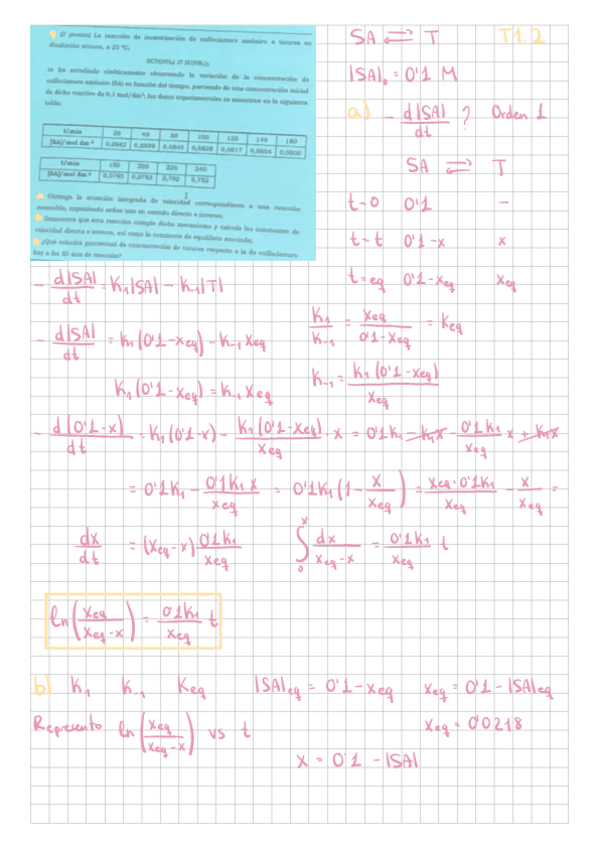 (2 puntos) La reacción de isomerización de sulfocianuro amónico a tiourea en
disolución acuosa, a 25 ºC,
se ha estudiado cinéticamente observando la variación de la concentración de
sulfocianuro amónico (SA) en función del tiempo, partiendo de una concentración inicial
de dicho reactivo de 0,1 mol/dm³; los datos experimentales se muestran en la siguiente
tabla:
t/min 20 40 80 100 120 140 160
[SA]/mol dm⁻³
t/min 180 200 220 240
[SA]/mol dm⁻³
Obtenga la ecuación integrada de velocidad correspondiente a una reacción
reversible, suponiendo orden uno en sentido directo e inverso;
Demuestre que esta reacción cumple dicho mecanismo y calcule las constantes de
velocidad directa e inversa, así como la constante de equilibrio asociada;
¿Qué relación porcentual de concentración de tiourea respecto a la de sulfocianuro
hay a los 60 min de reacción?
SA ⇌ T T1.2
|SA|₀ = 0'1 M
a) - d|SA|/dt ? Orden 1
SA ⇌ T
t=0 0'1 -
t=t 0'1-x x
t=eq 0'1-xeq xeq
- d|SA|/dt = K₁|SA| - K₋₁|T|
K₁/K₋₁ = xeq/(0'1-xeq) = Keq
- d|SA|/dt = K₁(0'1-xeq) - K₋₁ xeq
K₁(0'1-xeq) = K₋₁ xeq K₋₁ = K₁(0'1-xeq)/xeq
- d(0'1-x)/dt = K₁(0'1-x) - K₁(0'1-xeq)/xeq · x = 0'1K₁ - K₁x - 0'1K₁/xeq x + K₁x
= 0'1K₁ - 0'1K₁x/xeq = 0'1K₁(1 - x/xeq) = xeq·0'1K₁/xeq - x/xeq =
dx/dt = (xeq-x) 0'1K₁/xeq ∫₀ˣ dx/(xeq-x) = 0'1K₁/xeq t
ln(xeq/(xeq-x)) = 0'1K₁/xeq t
b) K₁ K₋₁ Keq |SA|eq = 0'1-xeq xeq = 0'1-|SA|eq
Represento ln(xeq/(xeq-x)) vs t xeq = 0'0218
x = 0'1 - |SA|